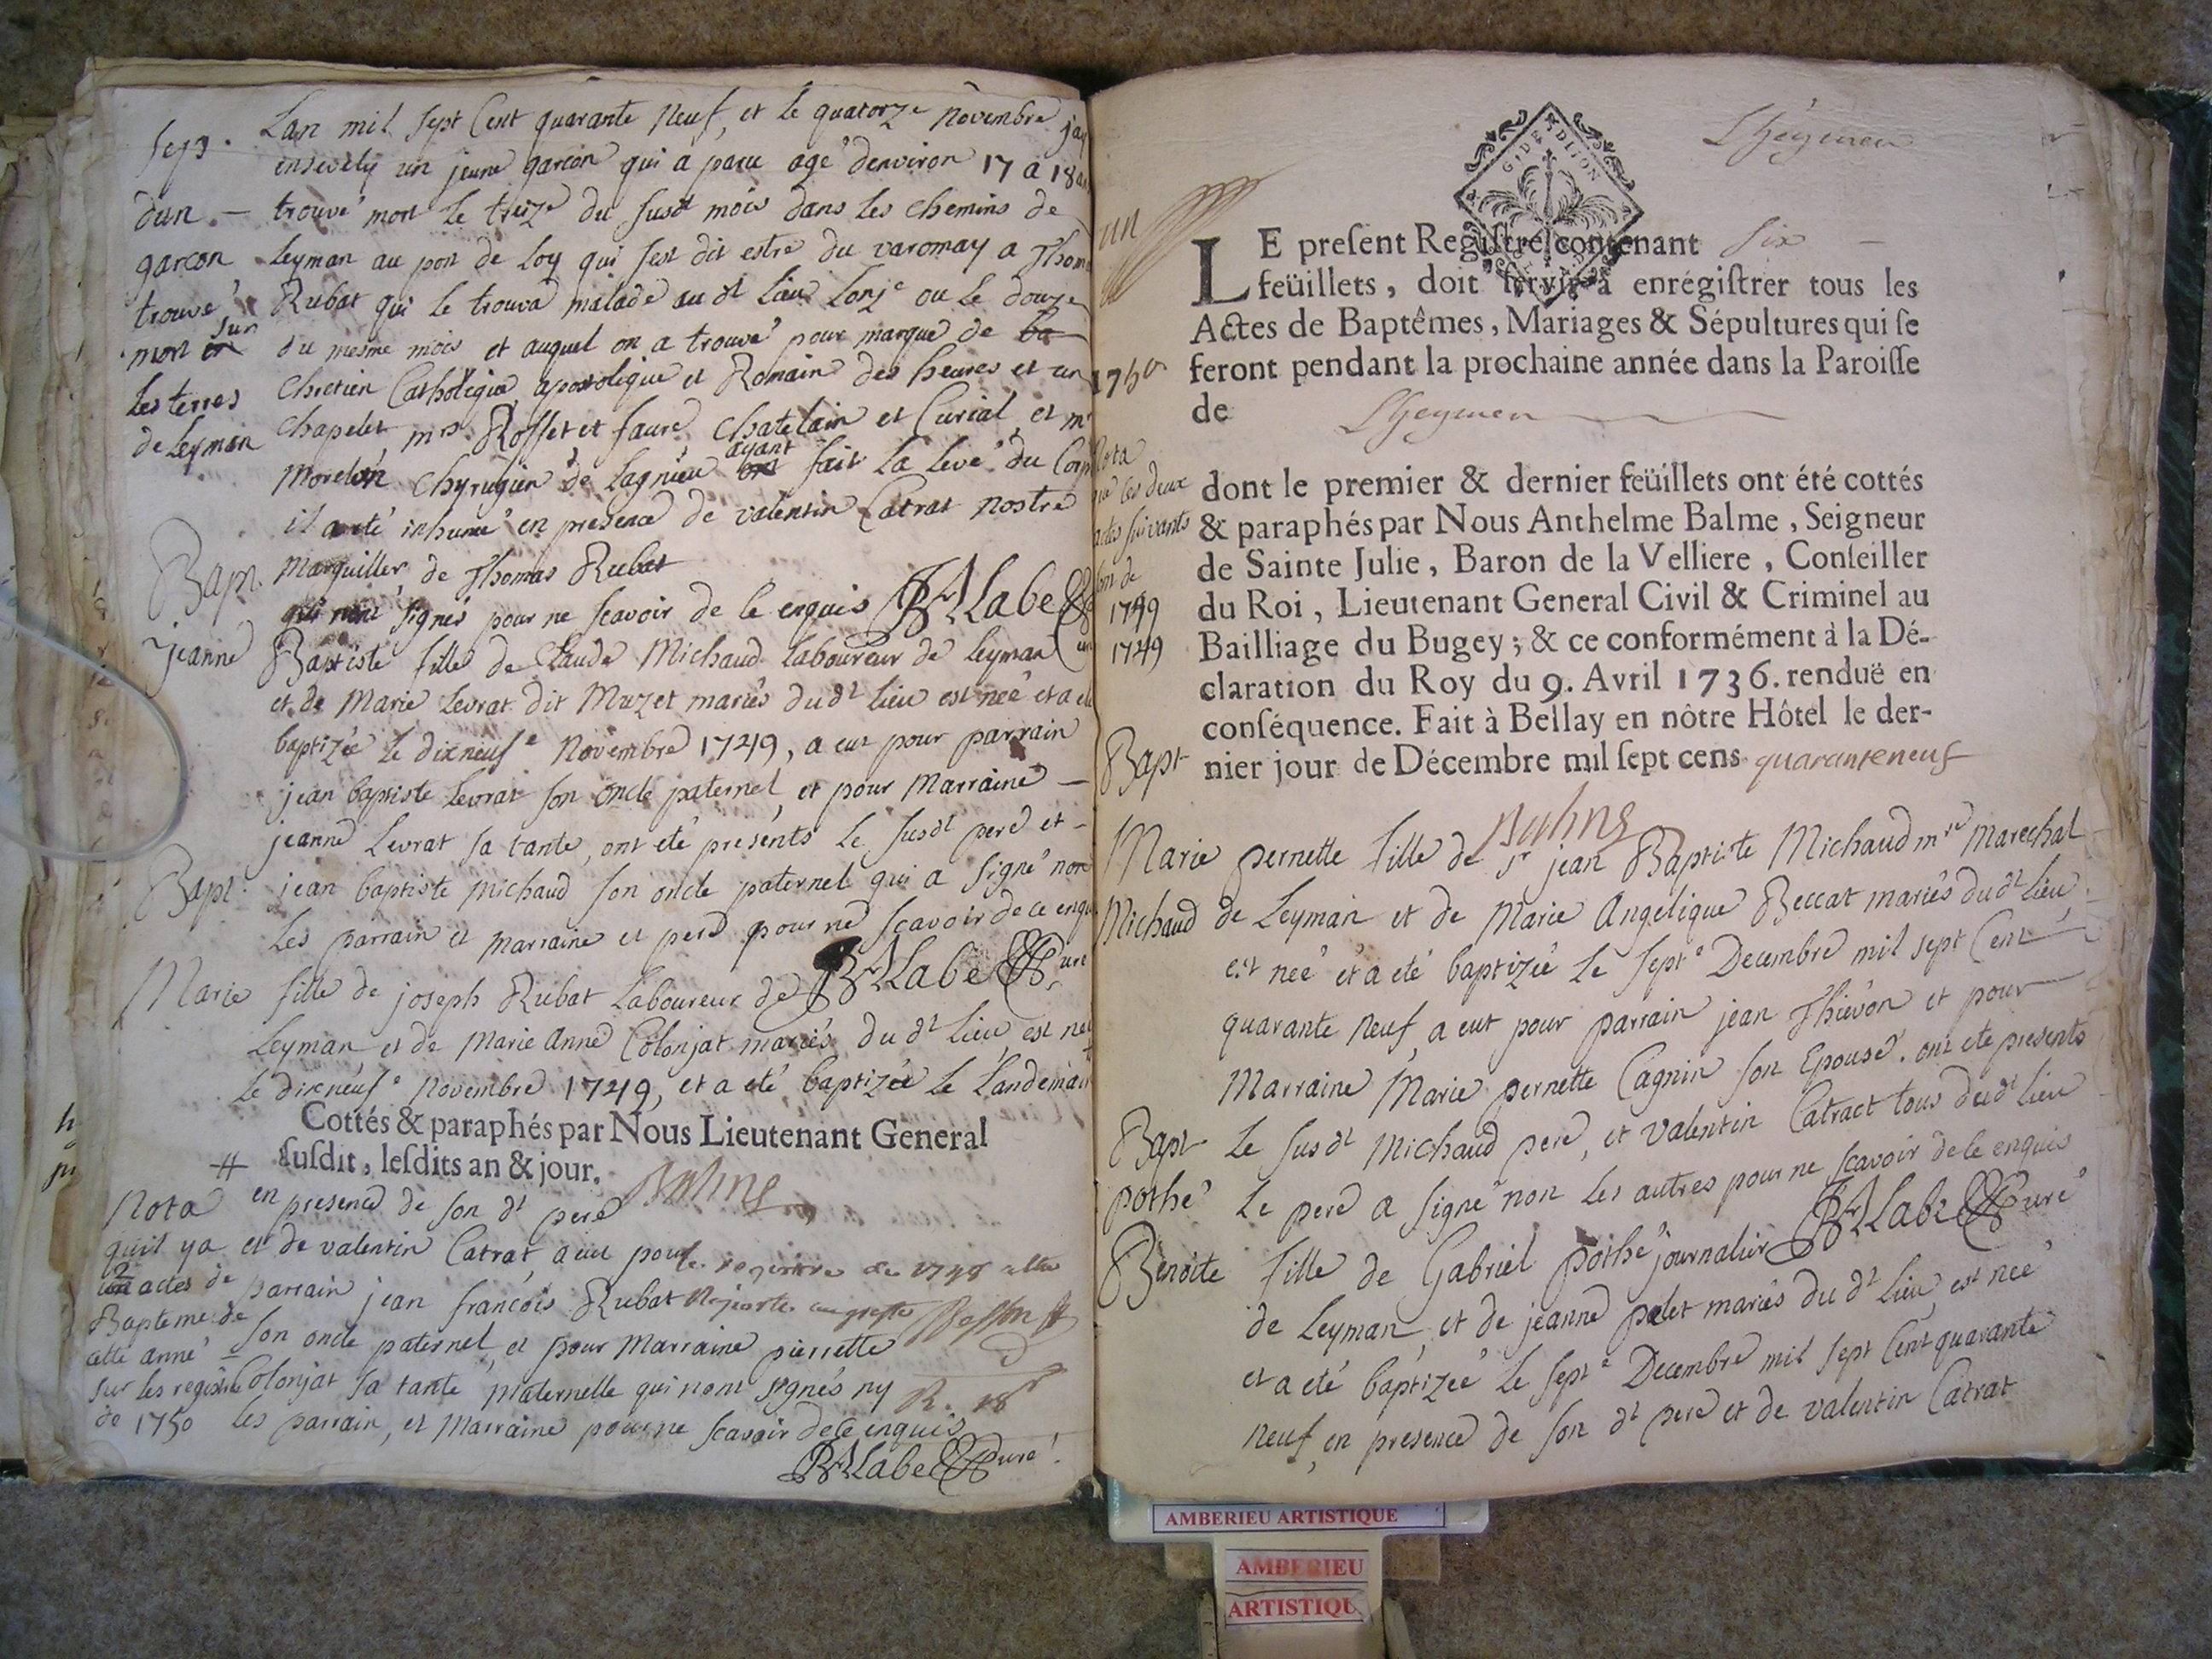 Sep.
dun —
garcon
trouvé
mort sur
les terres
de Leyman
Lan mil sept Cent quarante Neuf, et le quatorze Novembre jay
ensevely un jeune garcon qui a paru agé denviron 17 a 18 ans
trouvé mort le treize du susdt mois dans les chemins de
Leyman au port de Loy qui sest dit estre du varomay a Thomas
Rubat qui le trouva malade au dt lieu Lonze ou le douze
du mesme mois et auquel on a trouvé pour marque de
chretien Catholique, apostolique et Romain des heures et un
chapelet mrs Rosset et faure Chatelain et Curial, et mr
Morelon Chyrugien de Lagnieu ayant fait la levé du Corps
il a eté inhumé en presence de valentin Catrat nostre
Marguiller, de Thomas Rubat
qui nont signés pour ne scavoir de ce enquis Labe
Bapt.
jeanne Baptiste fille de Claude Michaud laboureur de Leyman
et de Marie Levrat dit Muzet mariés du dt lieu est neé et a eté
baptizée le dixneufe Novembre 1749, a eut pour parrain
jean baptiste Levrat son oncle paternel, et pour Marraine —
jeanne Levrat sa tante, ont eté presents le susdt pere et —
jean baptiste Michaud son oncle paternel qui a signé non
les parrain et marraine et pere pour ne scavoir de ce enquis
Labe Curé
Bapt.
Marie fille de joseph Rubat Laboureur de
Leyman et de Marie Anne Colonjat mariés du dt lieu, est neé
le dixneufe Novembre 1749, et a eté baptizée le landemain
Cottés & paraphés par Nous Lieutenant General
susdit, lesdits an & jour.
Balme
en presence de son dt pere
et de valentin Catrat, a eut pour
parrain jean francois Rubat
son oncle paternel, et pour Marraine pierrette
Colonjat sa tante maternelle qui nont signés ny
les parrain, et Marraine pour ne scavoir de ce enquis
Labe Curé
Nota
quil y a
2 actes de
Bapteme de
cette anné
sur les registre
de 1750
le registre de 1748 a été
Lheymen
un
1750
LE present Registre contenant six
feüillets, doit servir à enrégistrer tous les
Actes de Baptêmes, Mariages & Sépultures qui se
feront pendant la prochaine année dans la Paroisse
de Lheymen
dont le premier & dernier feüillets ont été cottés
& paraphés par Nous Anthelme Balme, Seigneur
de Sainte Julie, Baron de la Velliere, Conseiller
du Roi, Lieutenant General Civil & Criminel au
Bailliage du Bugey; & ce conformément à la Dé-
claration du Roy du 9. Avril 1736. renduë en
conséquence. Fait à Bellay en nôtre Hôtel le der-
nier jour de Décembre mil sept cens quaranteneuf
Balme
Nota
que les deux
actes suivants
son de
1749
1749
Bapt
Michaud
Marie pernette fille de sr jean Baptiste Michaud mre Marechal
de Leyman et de Marie Angelique Beccat mariés du dt lieu
est neé et a eté baptizée le septe Decembre mil sept Cent
quarante neuf, a eut pour parrain jean Thievon et pour
Marraine Marie pernette Cagnin son Epouse. ont ete presents
le susdt Michaud pere, et valentin Catract tous du dt lieu
le pere a signé non les autres pour ne scavoir de ce enquis
Labe Curé
Bapt
pothé
Benoite fille de Gabriel pothé journalier
de Leyman, et de jeanne palet mariés du dt lieu, est neé
et a eté baptizée le septe Decembre mil sept Cent quarante
neuf, en presence de son dt pere et de valentin Catrat
AMBERIEU ARTISTIQUE
AMBERIEU
ARTISTIQU